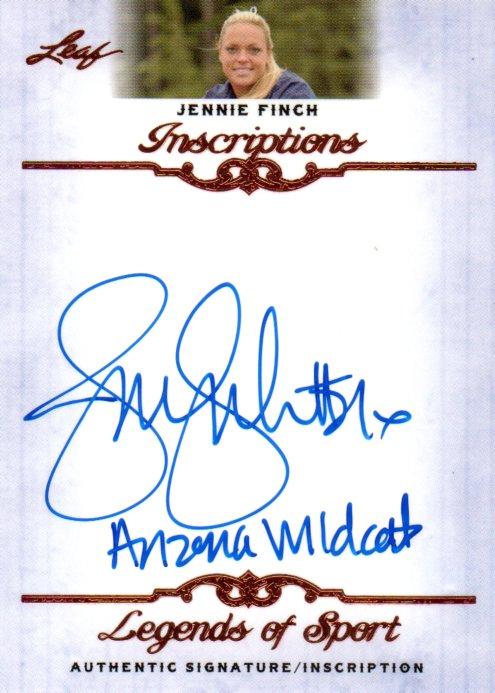 Leaf
JENNIE FINCH
Inscriptions
Arizona Wildcats
Legends of Sport
AUTHENTIC SIGNATURE/INSCRIPTION